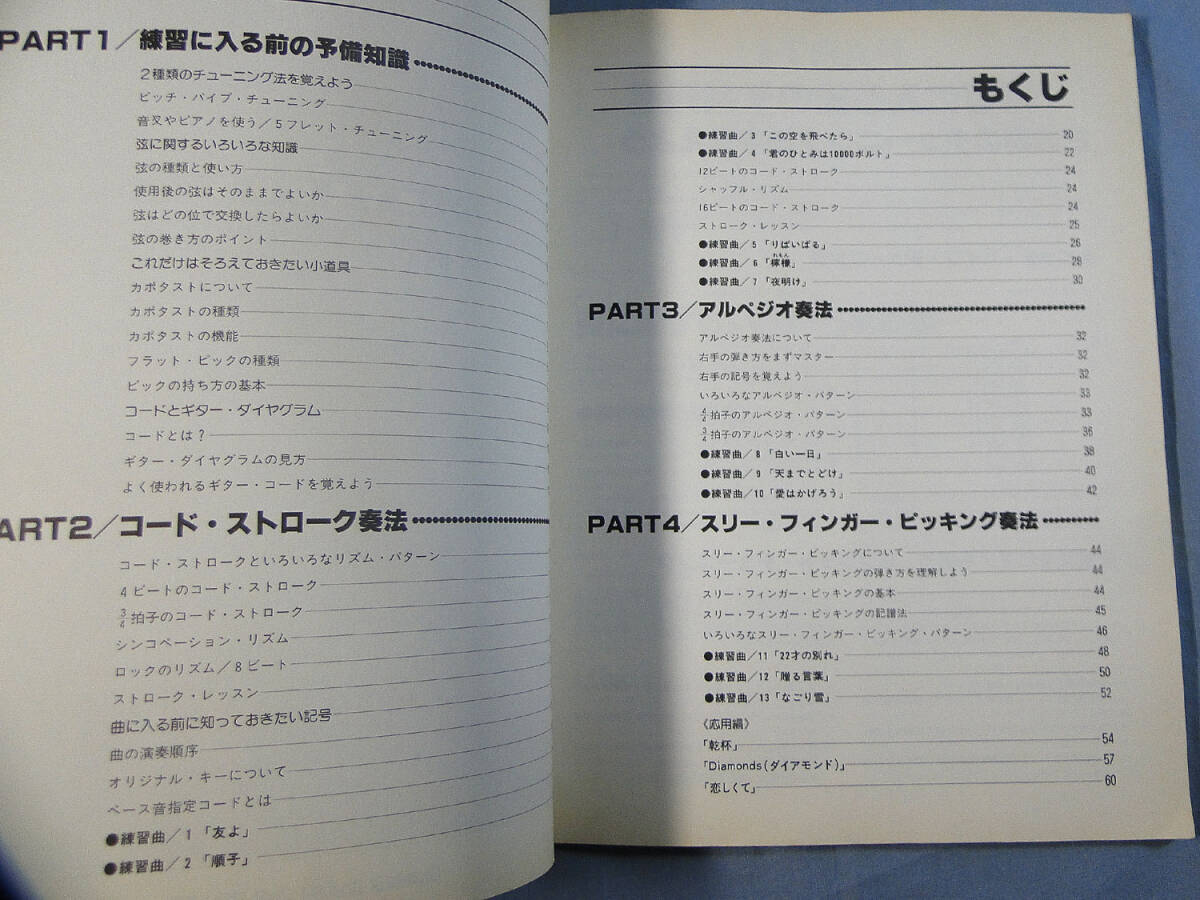 PART1／練習に入る前の予備知識
2種類のチューニング法を覚えよう
ピッチ・パイプ・チューニング
音叉やピアノを使う／5フレット・チューニング
弦に関するいろいろな知識
弦の種類と使い方
使用後の弦はそのままでよいか
弦はどの位で交換したらよいか
弦の巻き方のポイント
これだけはそろえておきたい小道具
カポタストについて
カポタストの種類
カポタストの機能
フラット・ピックの種類
ピックの持ち方の基本
コードとギター・ダイヤグラム
コードとは？
ギター・ダイヤグラムの見方
よく使われるギター・コードを覚えよう
ART2／コード・ストローク奏法
コード・ストロークといろいろなリズム・パターン
4ビートのコード・ストローク
3/4拍子のコード・ストローク
シンコペーション・リズム
ロックのリズム／8ビート
ストローク・レッスン
曲に入る前に知っておきたい記号
曲の演奏順序
オリジナル・キーについて
ベース音指定コードとは
●練習曲／1「友よ」
●練習曲／2「順子」
もくじ
●練習曲／3「この空を飛べたら」 20
●練習曲／4「君のひとみは10000ボルト」 22
12ビートのコード・ストローク 24
シャッフル・リズム 24
16ビートのコード・ストローク 24
ストローク・レッスン 25
●練習曲／5「りばいばる」 26
●練習曲／6「檸檬」 28
れもん
●練習曲／7「夜明け」 30
PART3／アルペジオ奏法
アルペジオ奏法について 32
右手の弾き方をまずマスター 32
右手の記号を覚えよう 32
いろいろなアルペジオ・パターン 33
4/4拍子のアルペジオ・パターン 33
3/4拍子のアルペジオ・パターン 36
●練習曲／8「白い一日」 38
●練習曲／9「天までとどけ」 40
●練習曲／10「愛はかげろう」 42
PART4／スリー・フィンガー・ピッキング奏法
スリー・フィンガー・ピッキングについて 44
スリー・フィンガー・ピッキングの弾き方を理解しよう 44
スリー・フィンガー・ピッキングの基本 44
スリー・フィンガー・ピッキングの記譜法 45
いろいろなスリー・フィンガー・ピッキング・パターン 46
●練習曲／11「22才の別れ」 48
●練習曲／12「贈る言葉」 50
●練習曲／13「なごり雪」 52
〈応用編〉
「乾杯」 54
「Diamonds（ダイアモンド）」 57
「恋しくて」 60